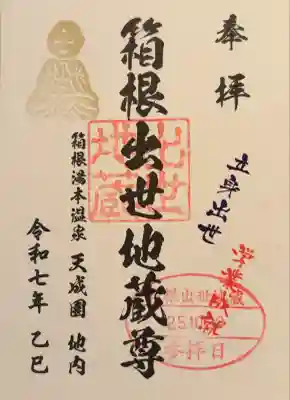 奉拝
立身出世
学業成就
箱根出世地蔵尊
出世
地蔵
箱根湯本温泉 天成園 地内
令和七年 乙巳
参拝日